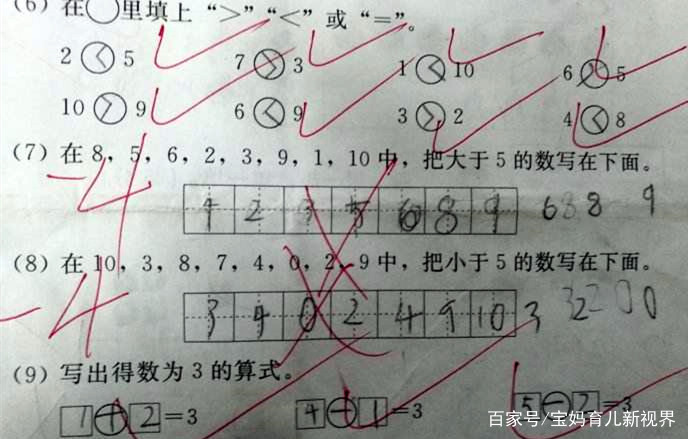 (6) 在○里填上 “>”“<” 或 “=”。
2 < 5 7 > 3 1 < 10 6 > 5
10 > 9 6 < 9 3 > 2 4 < 8
(7) 在 8，5，6，2，3，9，1，10 中，把大于 5 的数写在下面。
-4
1 2 3 5 6 8 9 6 8 8 9
(8) 在 10，3，8，7，4，0，2，9 中，把小于 5 的数写在下面。
-4
3 9 0 2 4 9 10 3 2 0
(9) 写出得数为 3 的算式。
1 + 2 = 3 4 - 1 = 3 5 - 2 = 3
百家号/宝妈育儿新视界